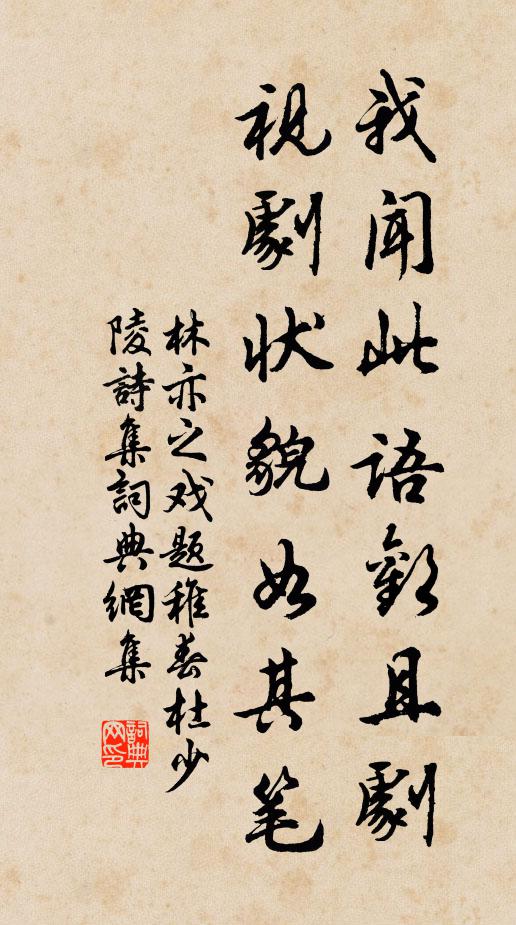 我聞此語歡且劇
視劇状貌如其笔
林亦之戏题稚春杜少
陵詩集詞典網集
詞典
网印